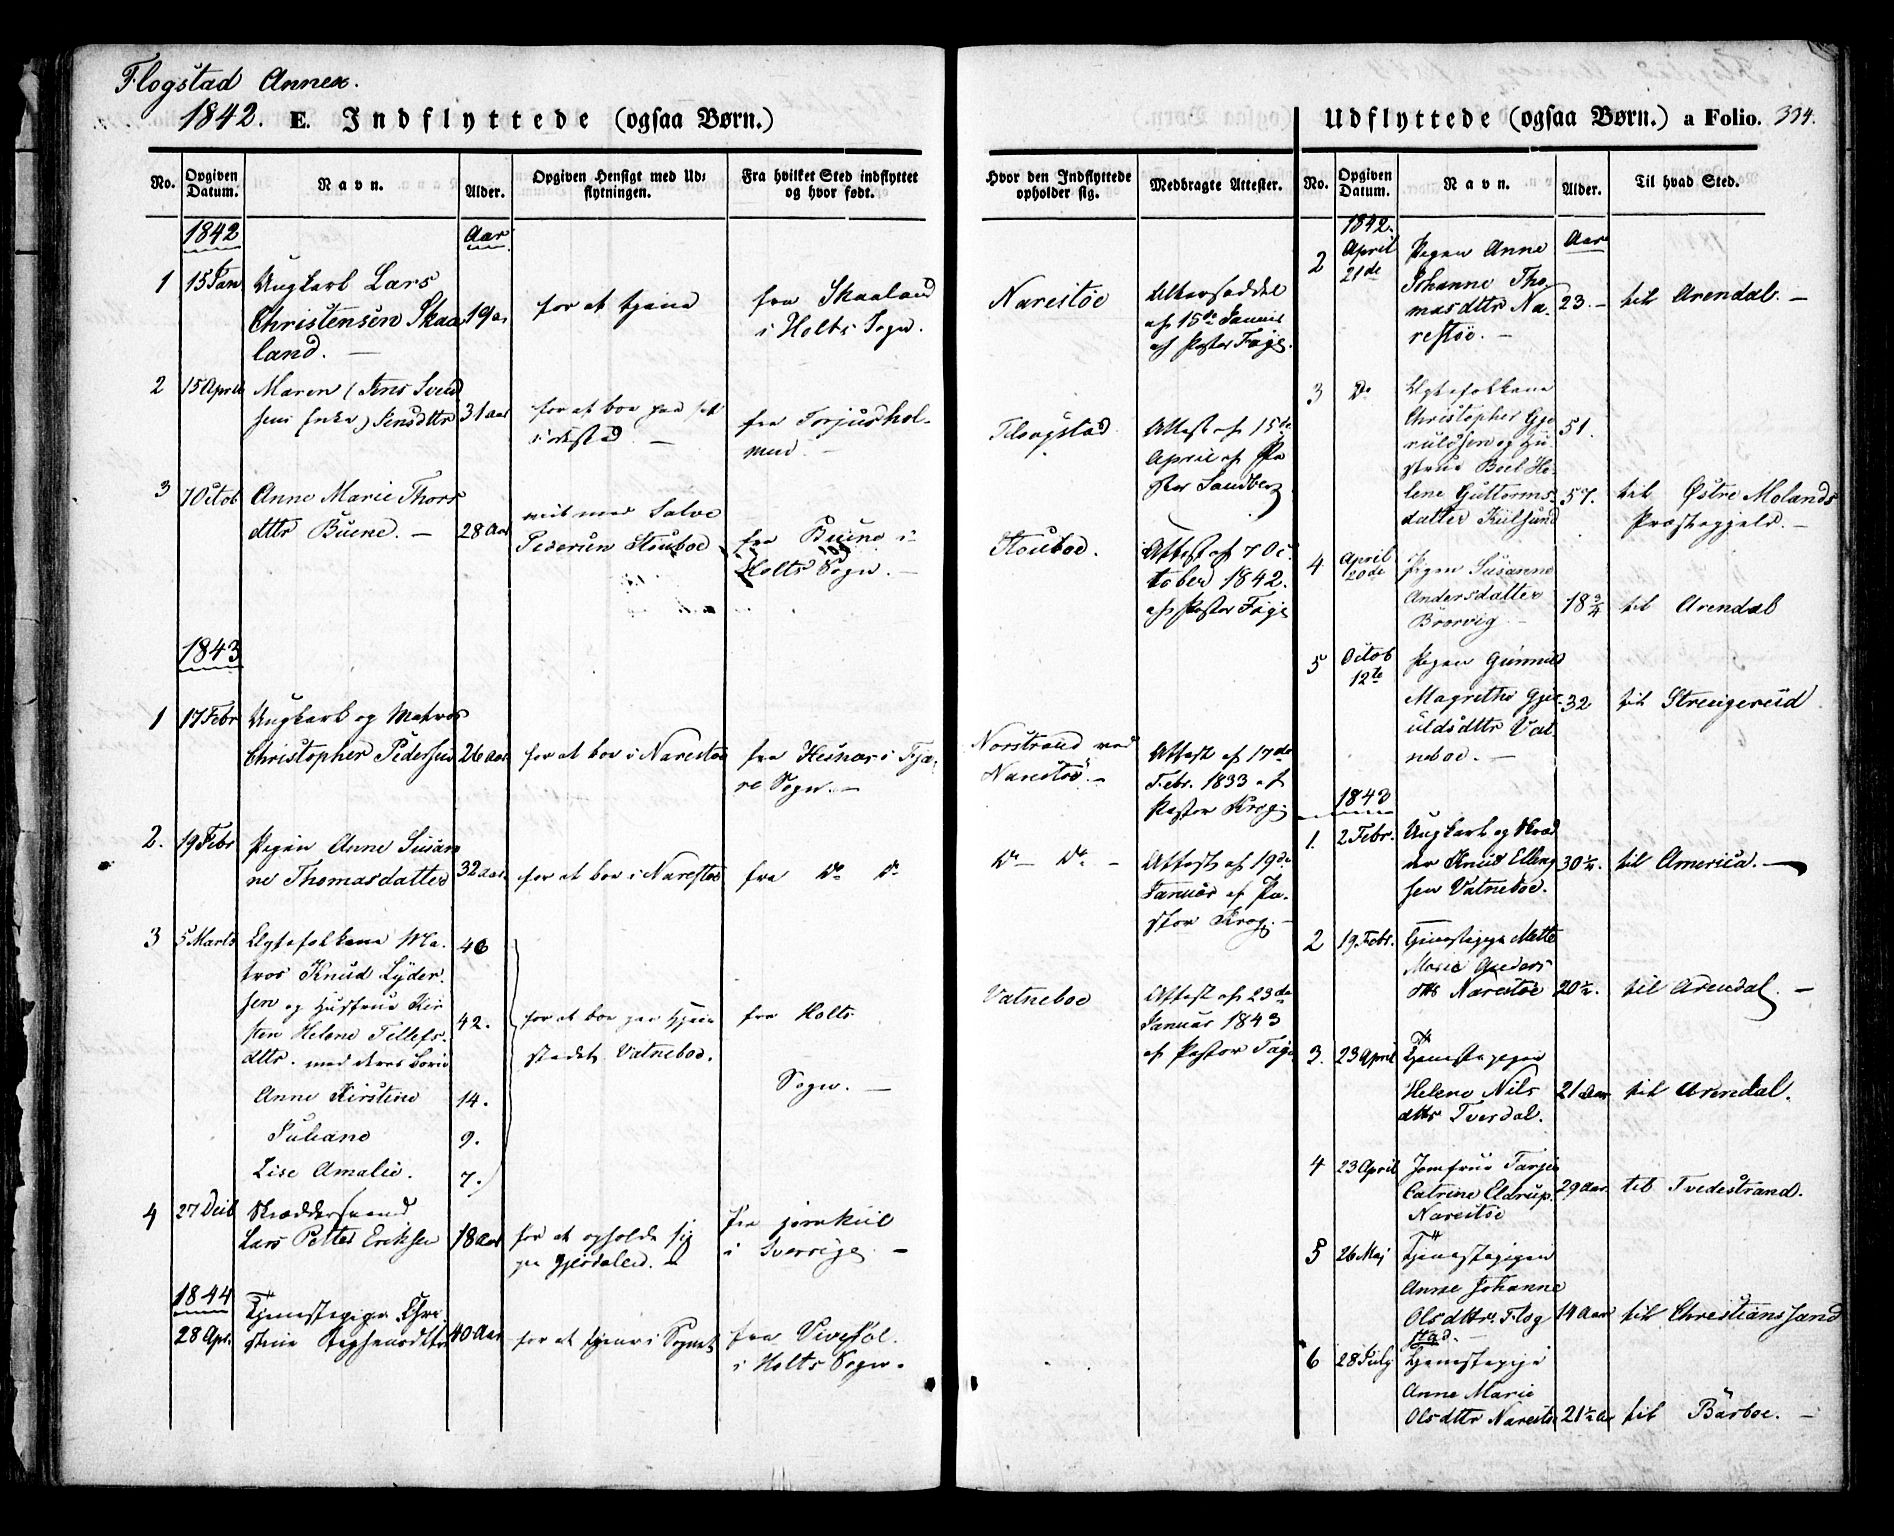 Flogstad Annex.
1842. E. Indflyttede (ogsaa Børn.)
No.
Opgiven Datum.
Navn.
Alder.
Opgiven Hensigt med Udflytningen.
Fra hvilket Sted indflyttet og hvor født.
Hvor den Indflyttede opholder sig.
Medbragte Attester.
1842
Aar
1 15 Jan Ungkarl Lars
Christensen Skaa
land. —
19 a
for at tjene
fra Skaaland
i Holts Sogn.
Narestöe
Alterseddel
af 15de Januar
af Pastor Faÿe.
2 15 April Maren (Jens Svend
sens Enke) Jensdttr
31 aar
for at boe paa
fra Torjushol-
men.
Flougstad
Attest af 15de
April af Pa
stor Sandberg
3 7 Octob Anne Marie Thors
dttr Buene. —
28 Aar
med Salve
Pedersen Stouboe
fra Buene i
Holts Sogn. —
Stouboe.
Attest af 7 Oc
tober 1842.
af Pastor Faÿe
1843
1 17 Febr Ungkarl og Matros
Christopher Pedersen
26 aar
for at boe i Narestöe
fra Hesnæs i Fjæ
re Sogn. —
Norstrand ved
Narestöe. —
Attest af 17de
Febr. 1833 af
Pastor Krog
2. 19 Febr Pigen Anne Susan
ne Thomasdatter
32 aar.
for at boe i Narestöe
fra Do Do
Do — Do —
Attest af 19de
Januar af Pa-
stor Krog. —
3 5 Marts Ægtefolkene Ma-
tros Knud Lÿder-
sen og Hustrue Kir
sten Helene Tellefs-
dttr. med deres Børn
40
42.
Anne Kirstine 14.
Juliane 9.
Lise Amalie. 7.
for at boe paa
stedet Vatneboe.
fra Holts
Sogn. —
Vatneboe
Attest af 23de
Januar 1843
af Pastor Faÿe
4 27 Decb Skræddersvend
Lars Petter Eriksen
18 aar
for at opholde sig
paa Gjerdalen. —
fra
i Sverrige. —
1844
28 Apr. Tjenestepige Chri
stine
40 Aar
for at tjene i Sognet
fra Vivestöl.
i Holts Sogn.
Udflyttede (ogsaa Børn.) a Folio. 334.
No.
Opgiven Datum.
Navn.
Alder.
Til hvad Sted.
1842.
Aar
2 April
21de
Pigen Anne
Johanne Tho
masdttr Na-
restöe. —
23. — til Arendal. —
3 Do Ægtefolkene
Christopher Gje
ruldsen og Hu-
strue Boel He-
lene Guttorms
datter Kulsund
51.
57. til Østre Molands
Præstegjeld. —
4 April
20de
Pigen Susanne
Andersdatter
Brorvig —
18 3/4 til Arendal
5 Octob
12te
Pigen Gunnild
Magrethe Gje-
ruldsdttr Vat-
neboe. —
32 til Strengereid.
1843
1. 2 Febr. Ungkarl og Skræd
der Knud Elling
sen Vatneboe.
30 1/2. til America. —
2 19 Febr. Tjenestepige Mette
Marie
dttr Narestöe
20 1/2. til Arendal. —
3. 23 April Tjenestepigen
Helene Nils
dttr Tverdal.
21 aar til Arendal.
4 23 April Jomfrue
Catrine Eldrup.
Narestöe
29 aar. til Tvedestrand.
5 26 Maj Tjenestepigen
Anne Johanne
Olsdttr. Flog
stad. —
14 aar til Christianssand
6 28 July Tjenestepige
Anne Marie
Olsdttr Narestöe
21 1/2 a til Barboe. —